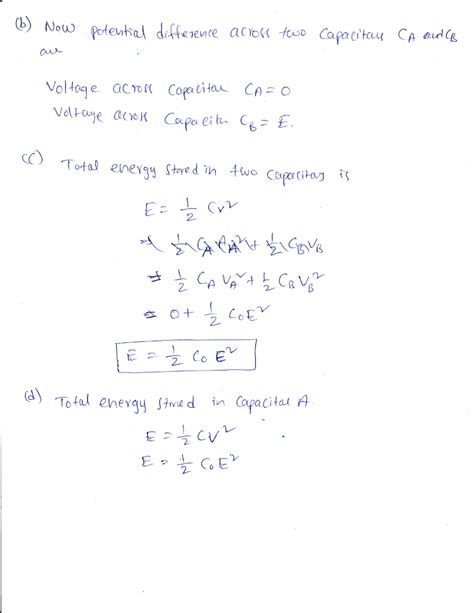 (b) Now potential difference across two Capacitars CA and CB
are
Voltage across Capacitar CA = 0
Voltage across Capacitr CB = E.
(C) Total energy stored in two Capacitars is
E = 1/2 CV²
= 1/2 CA VA² + 1/2 CB VB² 
= 0 + 1/2 C0E²
E = 1/2 C0 E²
(d) Total energy stored in Capacitar A.
E = 1/2 CV²
E = 1/2 C0E²